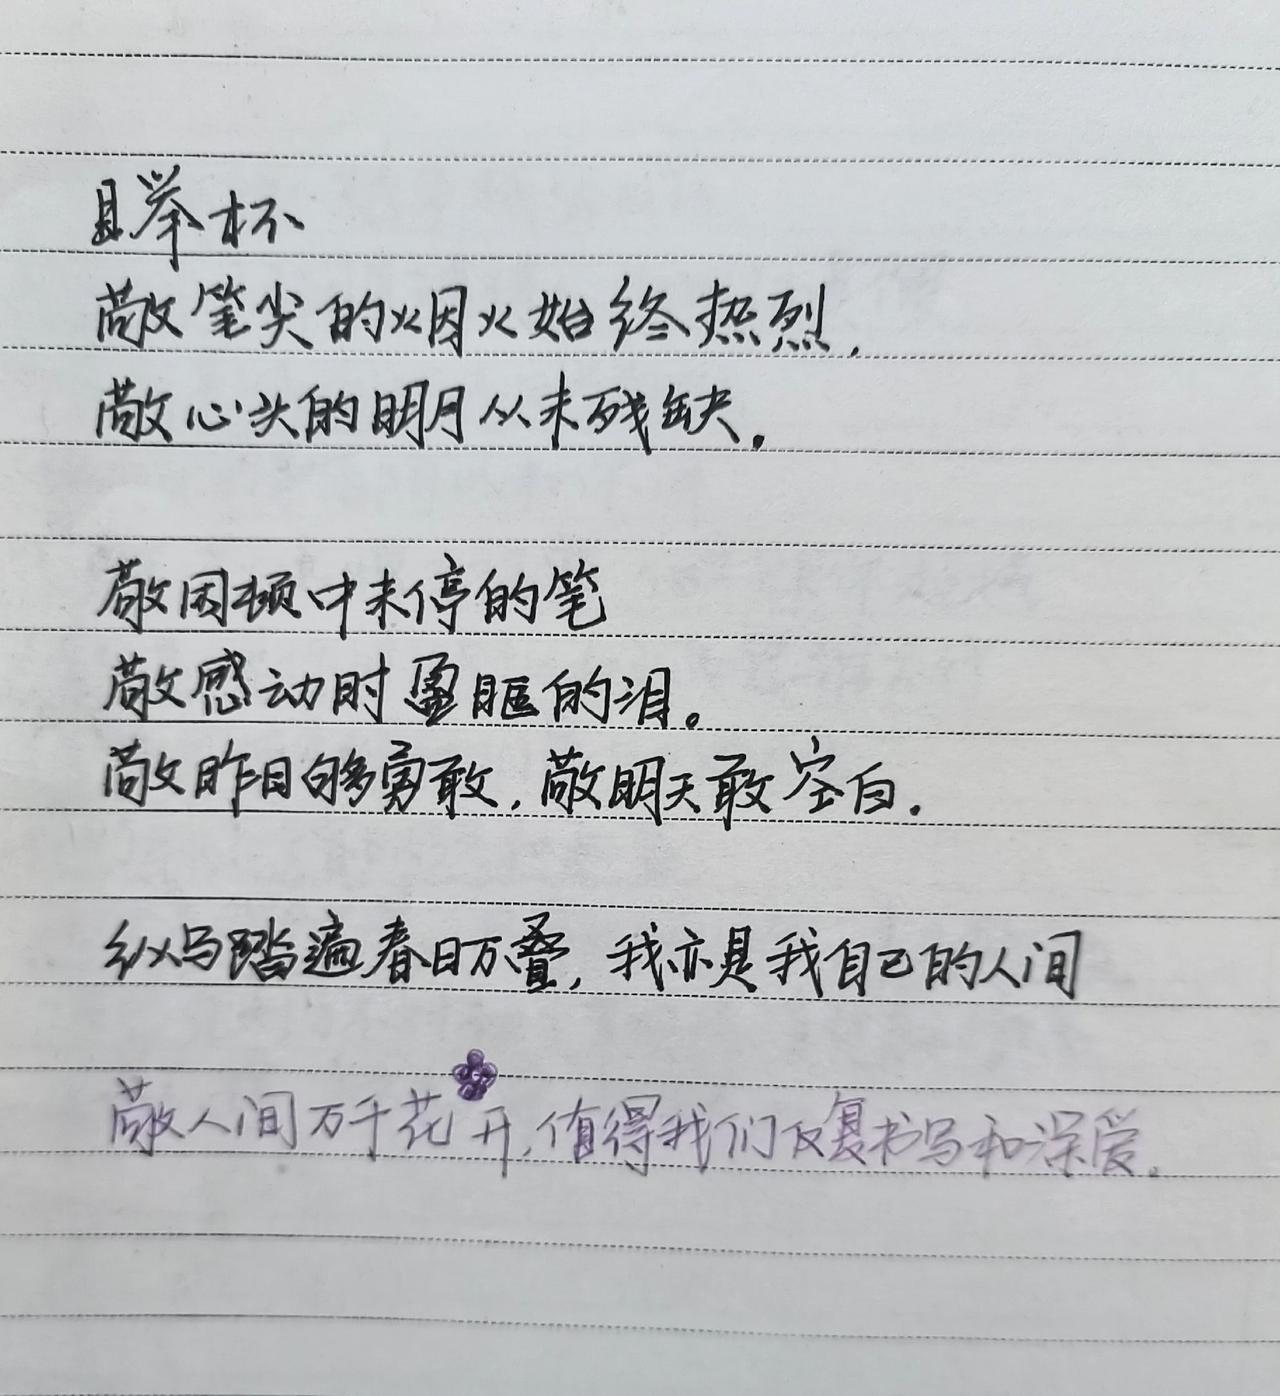 且举杯
敬笔尖的烟火始终热烈，
敬心头的明月从未残缺。
敬困顿中未停的笔
敬感动时盈眶的泪。
敬昨日够勇敢，敬明天敢空白。
纵马踏遍春日万叠，我亦是我自己的人间
敬人间万千花开，值得我们反复书写和深爱。